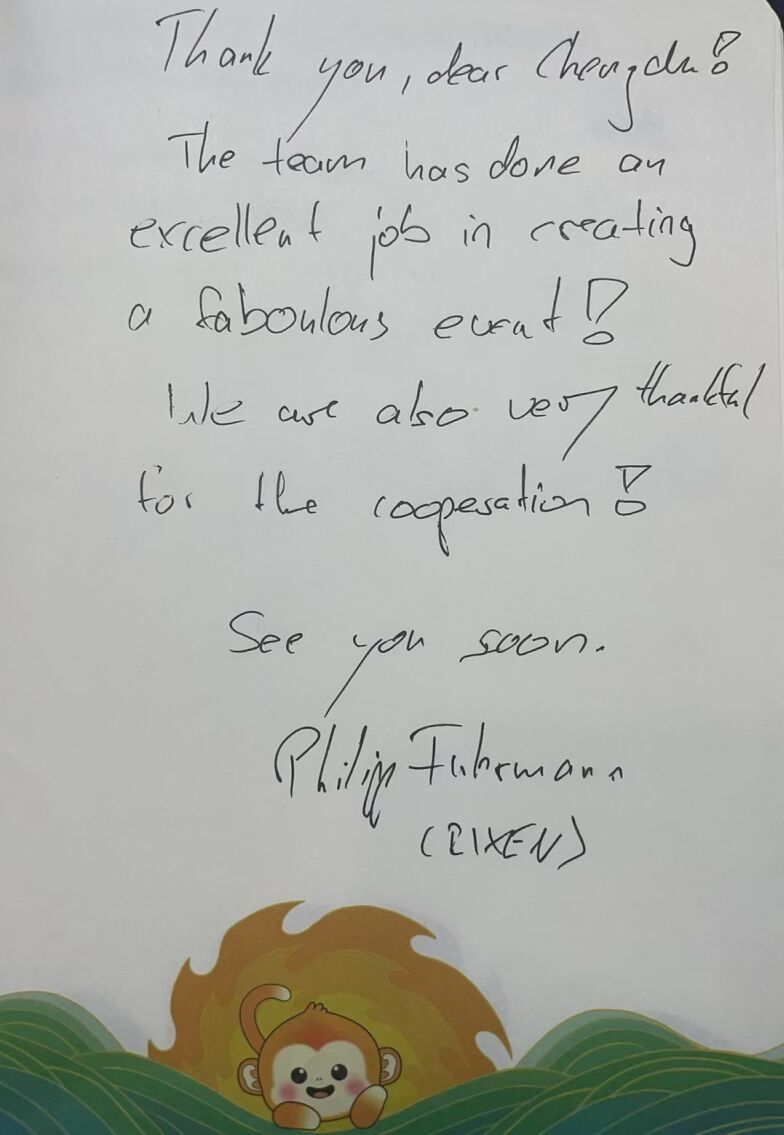 Thank you, dear Chengdu!
The team has done an
excellent job in creating
a faboulous event!
We are also very thankful
for the cooperation!
See you soon.
Philipp Fuhrmann
(RIXEN)